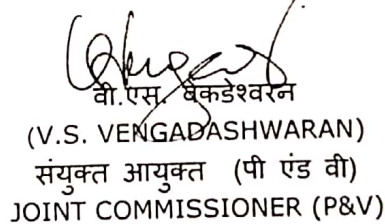 वी.एस. वेंकडेश्वरन
(V.S. VENGADASHWARAN)
संयुक्त आयुक्त (पी एंड वी)
JOINT COMMISSIONER (P&V)